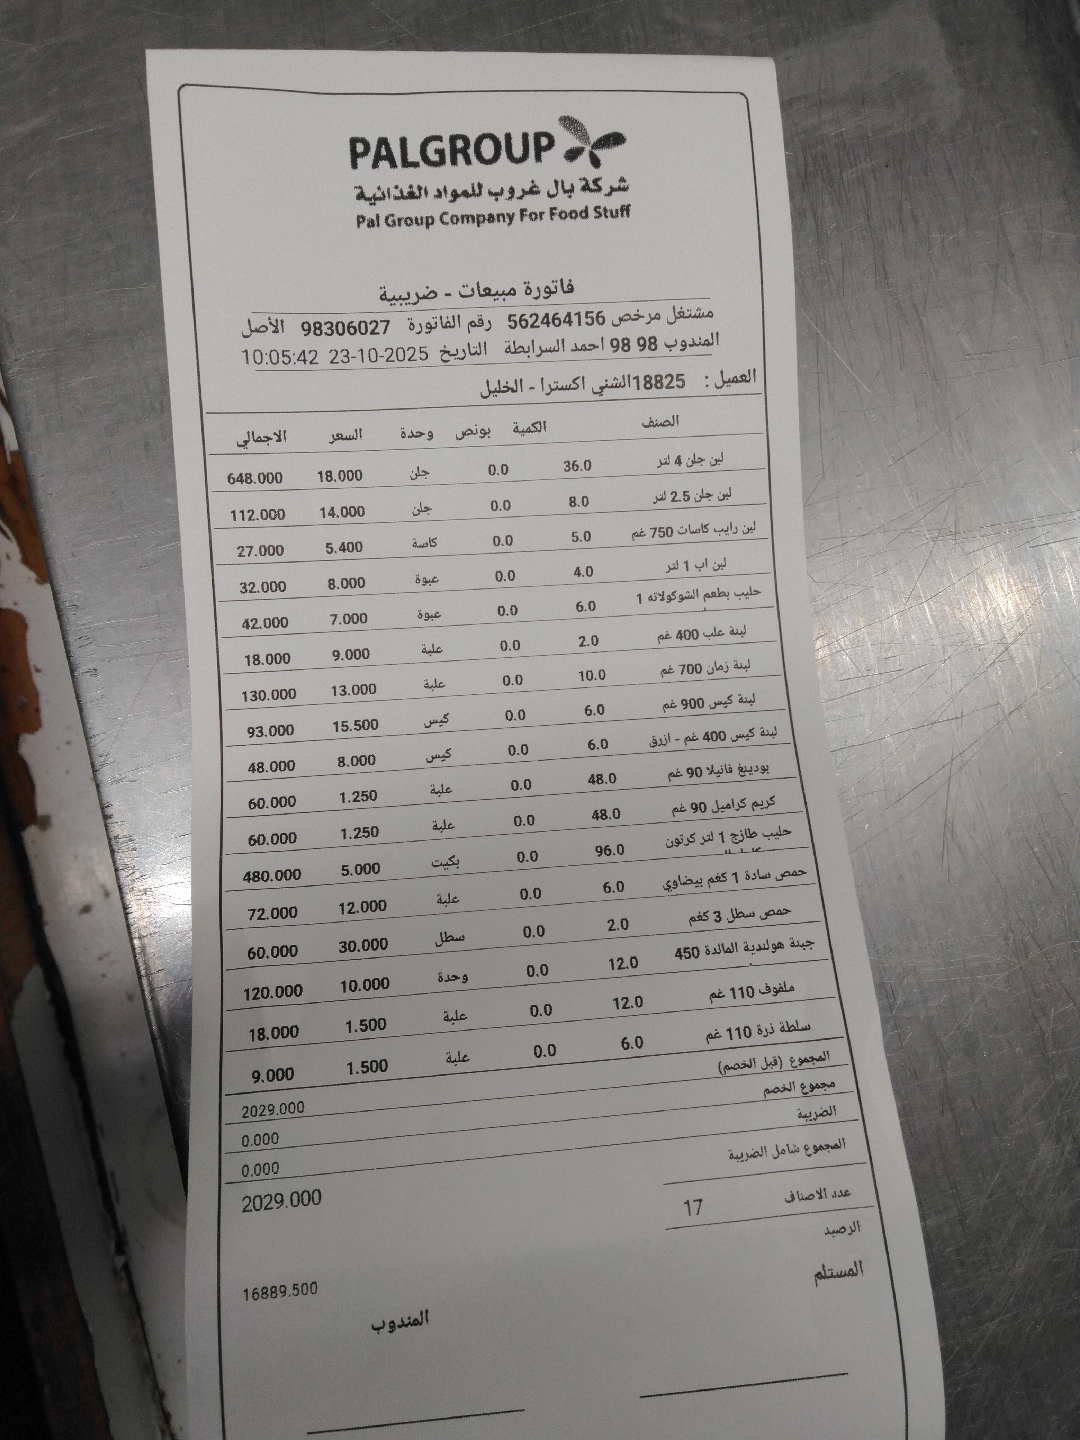 PALGROUP
شركة بال غروب للمواد الغذائية
Pal Group Company For Food Stuff
فاتورة مبيعات - ضريبية
مشتغل مرخص 562464156 رقم الفاتورة 98306027 الأصل
المندوب 98 98 احمد السرابطة التاريخ 23-10-2025 10:05:42
العميل : 18825الشني اكسترا - الخليل
الصنف الكمية بونص وحدة السعر الاجمالي
لبن جلن 4 لتر 36.0 0.0 جلن 18.000 648.000
لبن جلن 2.5 لتر 8.0 0.0 جلن 14.000 112.000
لبن رايب كاسات 750 غم 5.0 0.0 كاسة 5.400 27.000
لبن اب 1 لتر 4.0 0.0 عبوة 8.000 32.000
حليب بطعم الشوكولاته 1 6.0 0.0 عبوة 7.000 42.000
لبنة علب 400 غم 2.0 0.0 علبة 9.000 18.000
لبنة زمان 700 غم 10.0 0.0 علبة 13.000 130.000
لبنة كيس 900 غم 6.0 0.0 كيس 15.500 93.000
لبنة كيس 400 غم - ازرق 6.0 0.0 كيس 8.000 48.000
بودينغ فانيلا 90 غم 48.0 0.0 علبة 1.250 60.000
كريم كراميل 90 غم 48.0 0.0 علبة 1.250 60.000
حليب طازج 1 لتر كرتون 96.0 0.0 بكيت 5.000 480.000
حمص سادة 1 كغم بيضاوي 6.0 0.0 علبة 12.000 72.000
حمص سطل 3 كغم 2.0 0.0 سطل 30.000 60.000
جبنة هولندية المائدة 450 12.0 0.0 وحدة 10.000 120.000
ملفوف 110 غم 12.0 0.0 علبة 1.500 18.000
سلطة ذرة 110 غم 6.0 0.0 علبة 1.500 9.000
المجموع (قبل الخصم) 2029.000
مجموع الخصم 0.000
الضريبة 0.000
المجموع شامل الضريبة 2029.000
عدد الاصناف 17
الرصيد 16889.500
المستلم المندوب